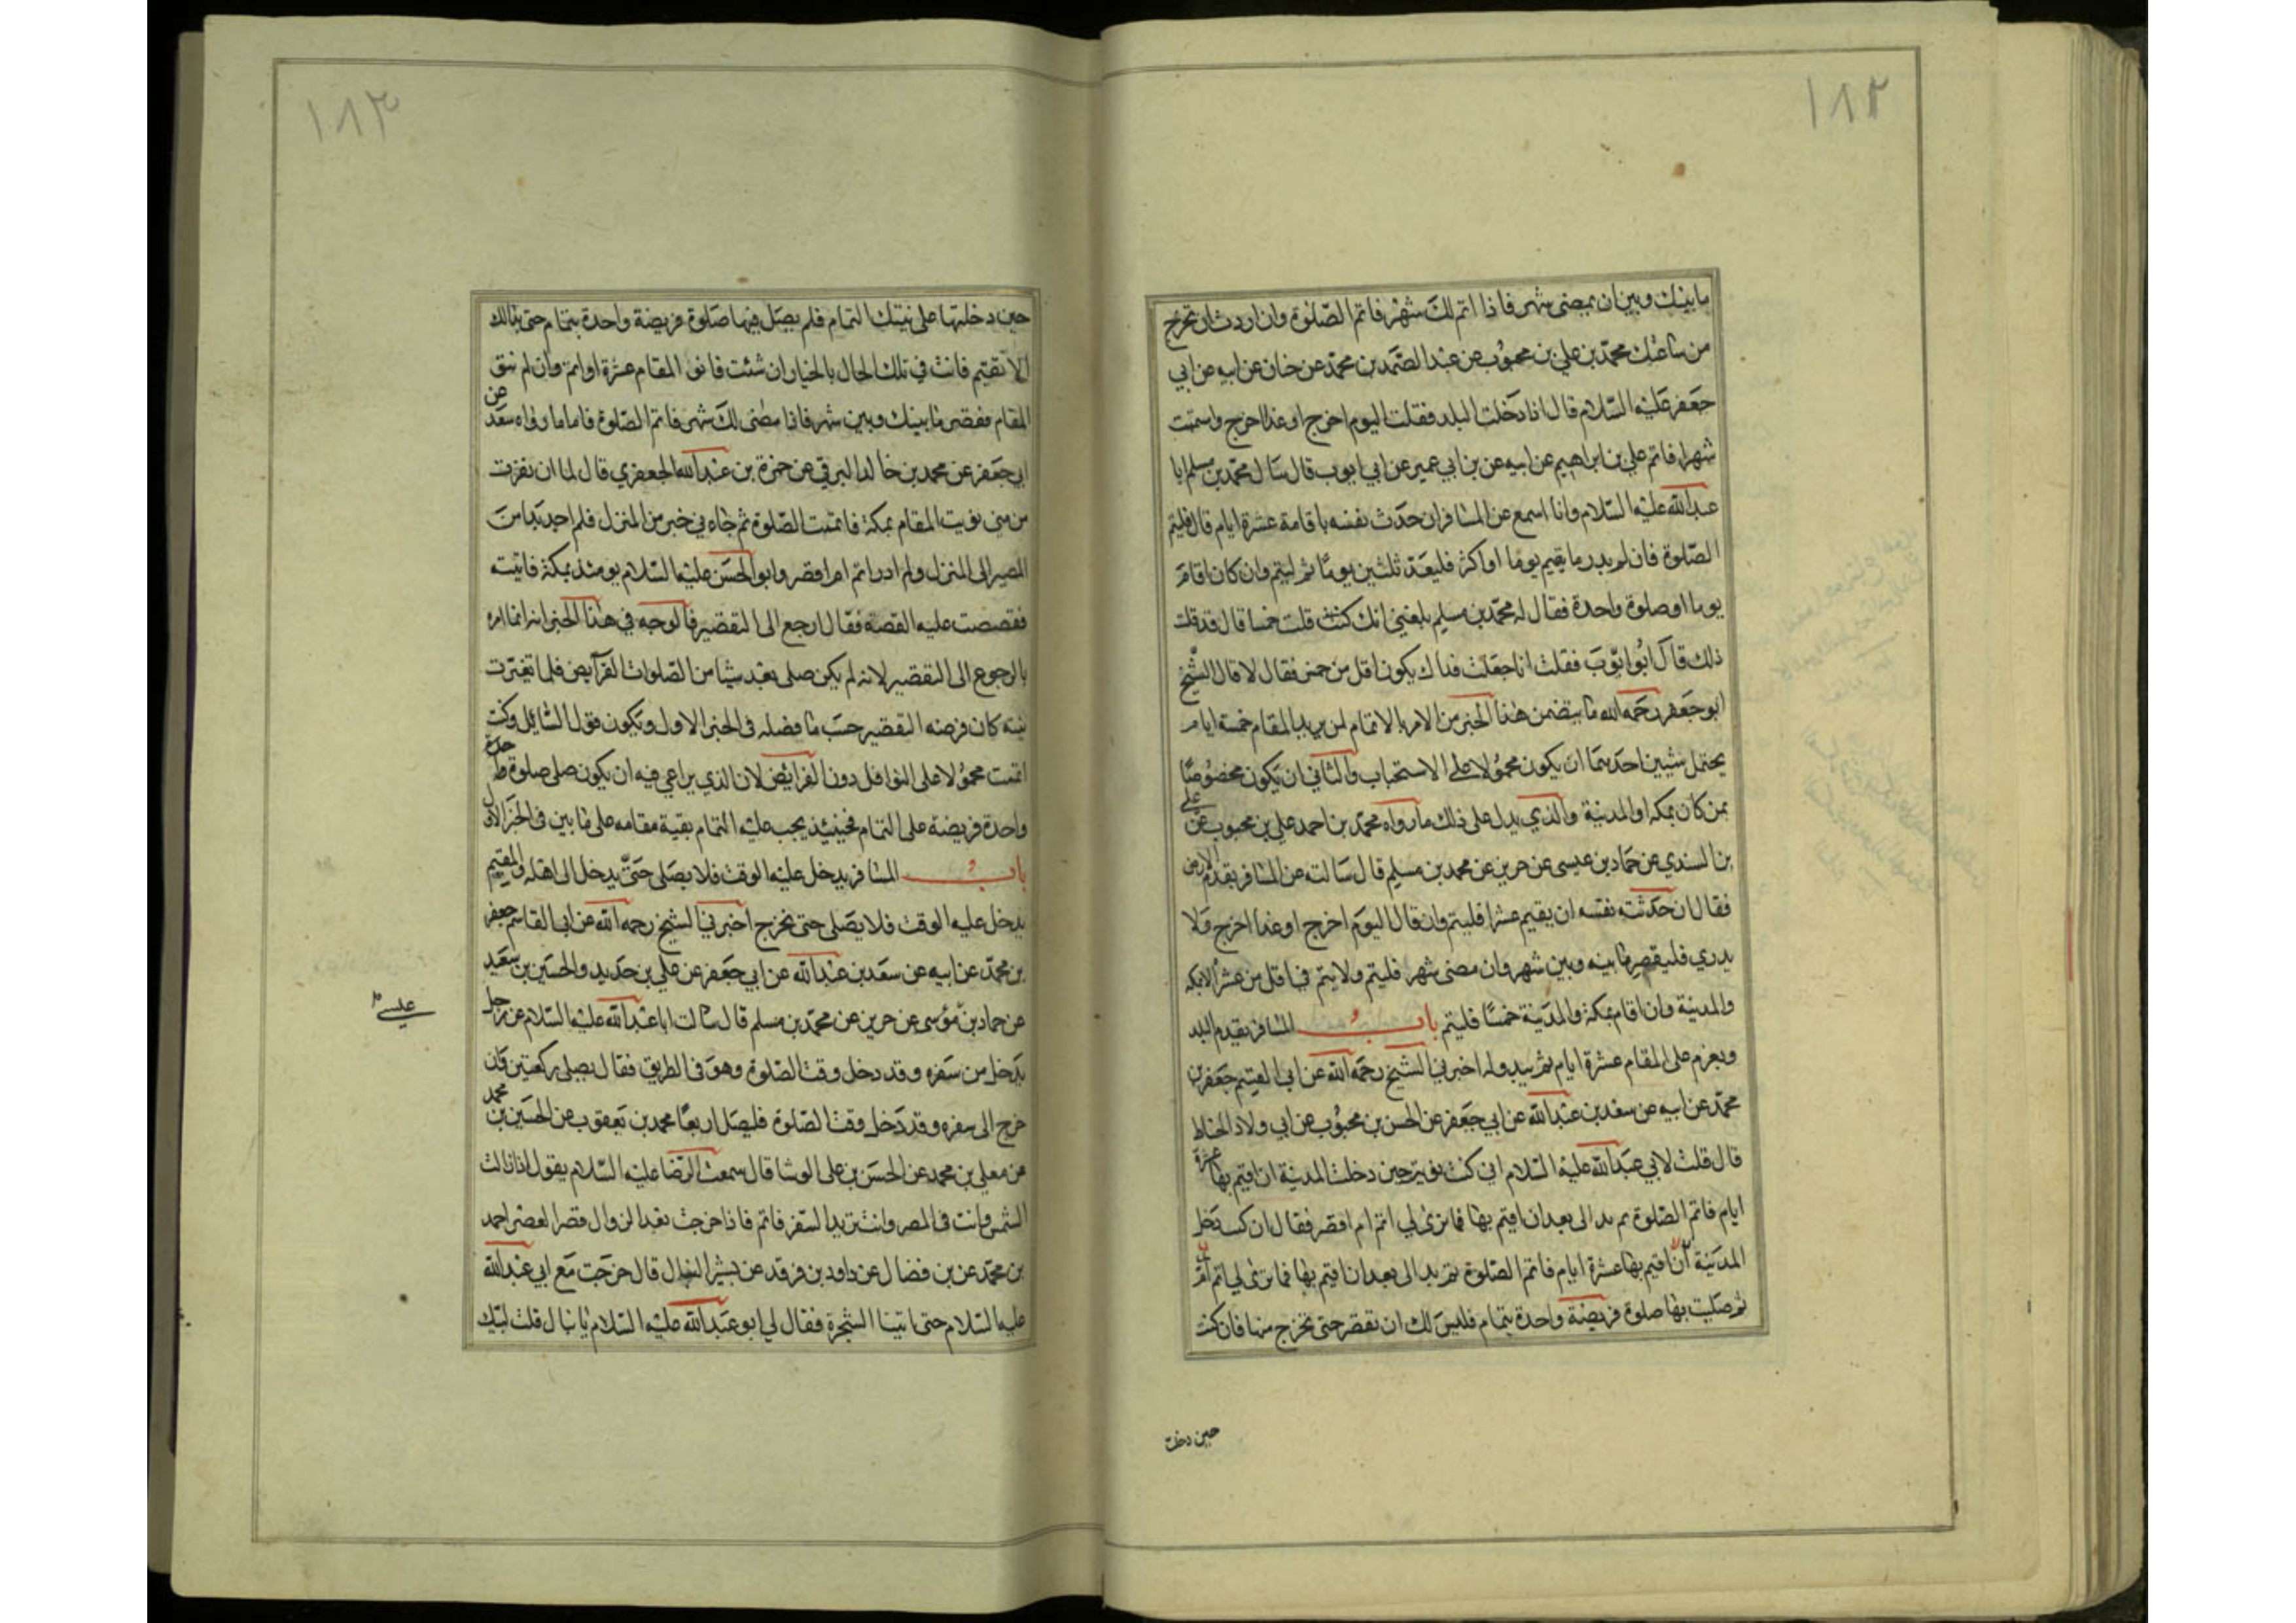 ١٨٢
ما بينك وبين ان يمضى شهر فاذا اتم لك شهر فاتم الصلوة وان اردت ان تخرج
من ساعتك محمد بن علي بن محبوب عن عبد الصمد بن محمد عن حنان عن ابيه عن ابي
جعفر عليه السلام قال اذا دخلت البلد فقلت اليوم اخرج او غدا اخرج واستتمت
شهرا فاتم علي بن ابراهيم عن ابيه عن بن ابي عمير عن ابي ايوب قال سال محمد بن مسلم ابا
عبد الله عليه السلام وانا اسمع عن المسافر ان حدث نفسه باقامة عشرة ايام قال فليتم
الصلوة فان لم يدر ما يقيم يوما او اكثر فليعد ثلثين يوما ثم ليتم وان كان اقام
يوما او صلوة واحدة فقال له محمد بن مسلم بلغني انك كنت قلت خمسا قال قد قلت
ذلك قال ابو ايوب فقلت انا جعلت فداك يكون اقل من خمس فقال لا قال الشيخ
ابو جعفر رحمه الله ما يتضمن هذا الخبر من الامر بالاتمام لمن يريد المقام خمسة ايام
يحتمل شيين احدهما ان يكون محمولا على الاستحباب والثاني ان يكون مخصوصا
بمن كان بمكة او المدينة والذي يدل على ذلك ما رواه محمد بن احمد علي بن محبوب عن علي
بن السندي عن حماد بن عيسى عن حريز عن محمد بن مسلم قال سالته عن المسافر يقدم الارض
فقال ان حدثته نفسه ان يقيم عشرا فليتم وان قال اليوم اخرج او غدا اخرج ولا
يدري فليقصر ما بينه وبين شهر وان مضى شهر فليتم ولا يتم في اقل من عشر الا بمكة
والمدينة وان اقام بمكة والمدينة خمسا فليتم باب المسافر يقدم البلد
ويعزم على المقام عشرة ايام ثم يبدو له اخبرني الشيخ رحمه الله عن ابي القسم جعفر بن
محمد عن ابيه عن سعد بن عبد الله عن ابي جعفر عن الحسن بن محبوب عن ابي ولاد الحناط
قال قلت لابي عبد الله عليه السلام اني كنت نويت حين دخلت المدينة ان اقيم بها عشرة
ايام فاتم الصلوة ثم بدا لى بعد ان اقيم بها فما ترى لي اتم ام اقصر فقال ان كنت دخلت
المدينة ان اقيم بها عشرة ايام فاتم الصلوة ثم بدا لى بعد ان اقيم بها فما ترى لي اتم ام
ثم صليت بها صلوة فريضة واحدة بتمام فليس لك ان تقصر حتى تخرج منها فان كنت
حين دخلت
١٨٣
حين دخلتها على نيتك التمام فلم يصل فيها صلوة فريضة واحدة بتمام حتى بدا لك
الا تقيم فانت في تلك الحال بالخيار ان شئت فانو المقام عشرة او اتم وان لم تنو
المقام فقصر ما بينك وبين شهر فاذا مضى لك شهر فاتم الصلوة فاما ما رواه سعد عن
ابي جعفر عن محمد بن خالد البرقي عن حمزة بن عبد الله الجعفري قال لما ان نفرت
من منى نويت المقام بمكة فاتممت الصلوة ثم جاءني خبر من المنزل فلم اجد بدا من
المصير الى المنزل ولم ادر اتم ام اقصر وابو الحسن عليه السلام يومئذ بمكة فاتيته
فقصصت عليه القصة فقال ارجع الى التقصير فالوجه في هذا الخبر انه انما امره
بالرجوع الى التقصير لانه لم يكن صلى بعد شيئا من الصلوات الفرايض فلما تغيرت
نيته كان فرضه التقصير حسب ما فصله فى الخبر الاول ويكون قول السائل وكنت
اتممت محمولا على النوافل دون الفرائض لان الذي يراعى فيه ان يكون صلى صلوة
واحدة فريضة على التمام فحينئذ يجب عليه التمام بقية مقامه على ما بين فى الخبر الاول
باب المسافر يدخل عليه الوقت فلا يصلى حتى يدخل الى اهله والمقيم
يدخل عليه الوقت فلا يصلى حتى يخرج اخبرني الشيخ رحمه الله عن ابي القاسم جعفر
بن محمد عن ابيه عن سعد بن عبد الله عن ابي جعفر عن علي بن حديد والحسين بن سعيد
عن حماد بن موسى عن حريز عن محمد بن مسلم قال سالت ابا عبد الله عليه السلام عن رجل
يدخل من سفره وقد دخل وقت الصلوة وهو فى الطريق فقال يصلى ركعتين وان
خرج الى سفره وقد دخل وقت الصلوة فليصل اربعا محمد بن يعقوب عن الحسين بن محمد
عن معلى بن محمد عن الحسن بن على الوشا قال سمعت الرضا عليه السلام يقول اذا زالت
الشمس وانت فى المصر وانت تريد السفر فاتم فاذا خرجت بعد الزوال قصر العصر احمد
بن محمد عن بن فضال عن داود بن فرقد عن بشير النبال قال خرجت مع ابي عبد الله
عليه السلام حتى اتينا الشجرة فقال لي ابو عبد الله عليه السلام يا نبال قلت لبيك